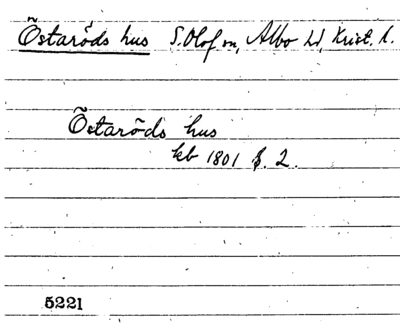 Östaröds hus S. Olof sn, Albo hd, Krist. l.
Östaröds hus
kb 1801 s. 2.
5221